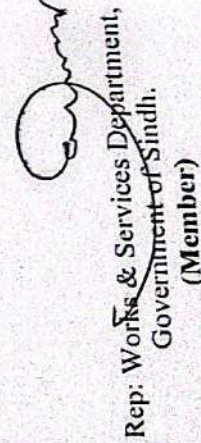 Rep: Works & Services Department,
Government of Sindh.
(Member)